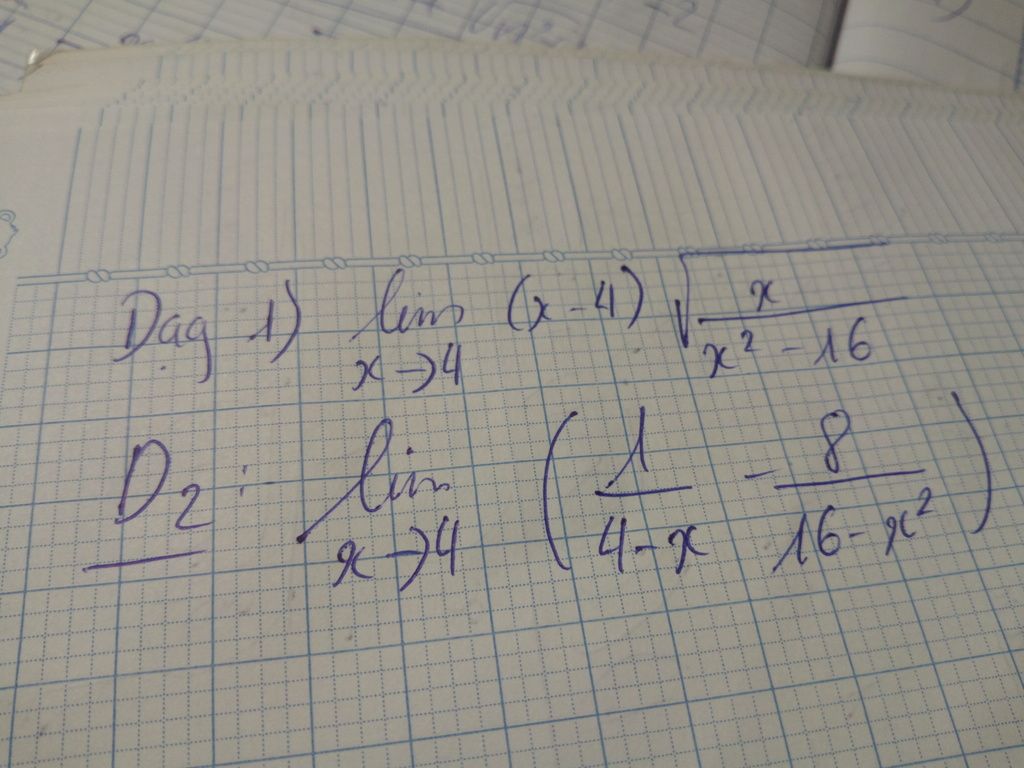 Dạg 1) lim x→4 (x-4) √(x/(x²-16))
D2: lim x→4 (1/(4-x) - 8/(16-x²))